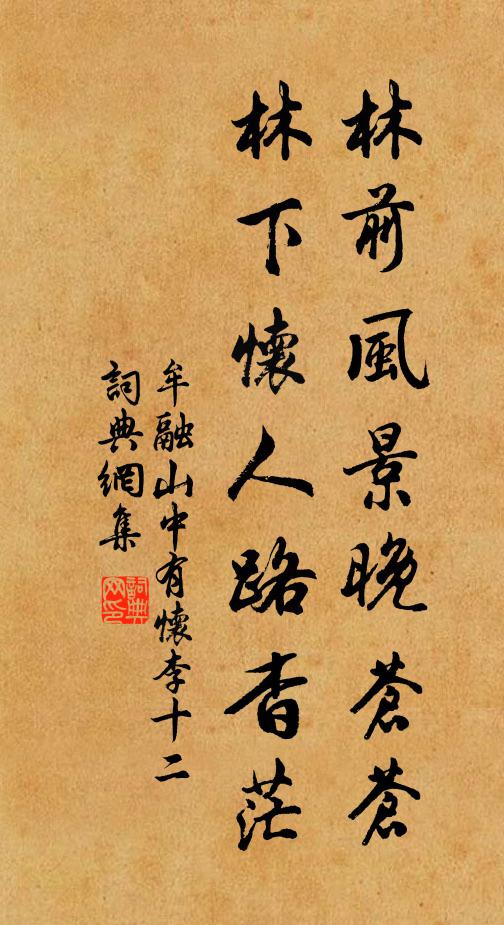 林前風景晚蒼蒼
林下懷人路杳茫
牟融山中有懷李十二
詞典網集
詞典網印